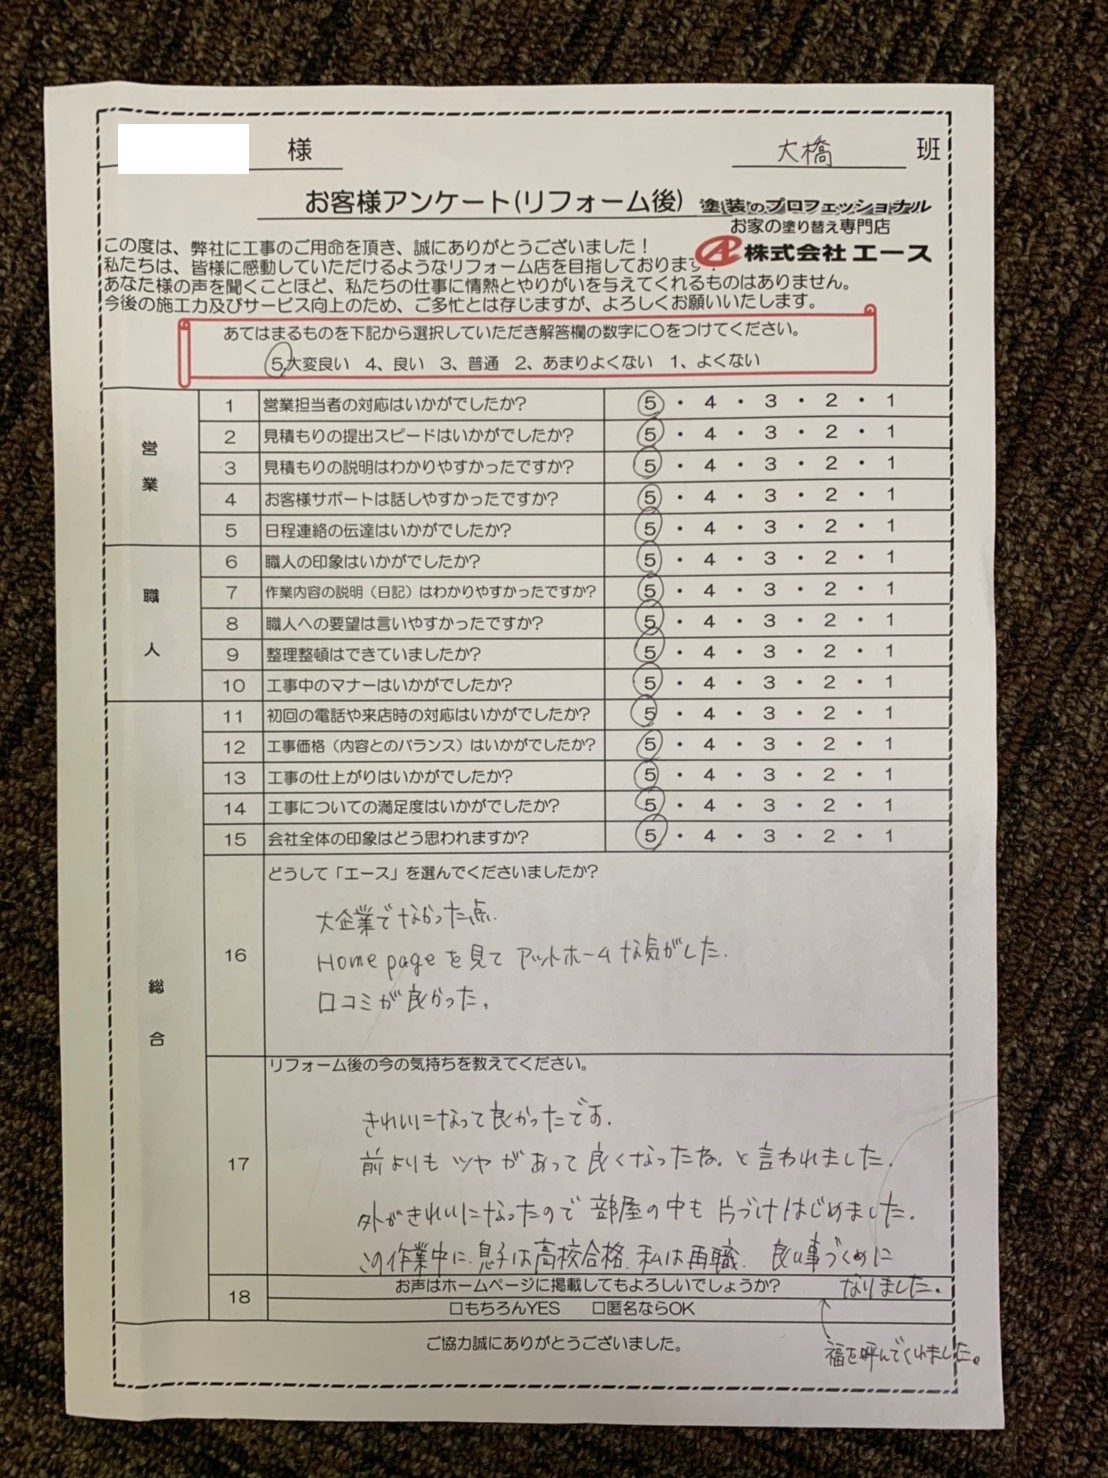 様
大橋 班
お客様アンケート(リフォーム後)
塗装のプロフェッショナル
お家の塗り替え専門店
株式会社エース
この度は、弊社に工事のご用命を頂き、誠にありがとうございました!
私たちは、皆様に感動していただけるようなリフォーム店を目指しております!
あなた様の声を聞くことほど、私たちの仕事に情熱とやりがいを与えてくれるものはありません。
今後の施工力及びサービス向上のため、ご多忙とは存じますが、よろしくお願いいたします。
あてはまるものを下記から選択していただき解答欄の数字に〇をつけてください。
5、大変良い 4、良い 3、普通 2、あまりよくない 1、よくない
営業
1 営業担当者の対応はいかがでしたか? 5・4・3・2・1
2 見積もりの提出スピードはいかがでしたか? 5・4・3・2・1
3 見積もりの説明はわかりやすかったですか? 5・4・3・2・1
4 お客様サポートは話しやすかったですか? 5・4・3・2・1
5 日程連絡の伝達はいかがでしたか? 5・4・3・2・1
職人
6 職人の印象はいかがでしたか? 5・4・3・2・1
7 作業内容の説明(日記)はわかりやすかったですか? 5・4・3・2・1
8 職人への要望は言いやすかったですか? 5・4・3・2・1
9 整理整頓はできていましたか? 5・4・3・2・1
10 工事中のマナーはいかがでしたか? 5・4・3・2・1
総合
11 初回の電話や来店時の対応はいかがでしたか? 5・4・3・2・1
12 工事価格(内容とのバランス)はいかがでしたか? 5・4・3・2・1
13 工事の仕上がりはいかがでしたか? 5・4・3・2・1
14 工事についての満足度はいかがでしたか? 5・4・3・2・1
15 会社全体の印象はどう思われますか? 5・4・3・2・1
16 どうして「エース」を選んでくださいましたか?
大企業でなかった点.
Home pageを見て アットホームな気がした.
口コミが良かった。
17 リフォーム後の今の気持ちを教えてください。
きれいになって良かったです.
前よりもツヤがあって良くなったね.と言われました.
外がきれいになったので部屋の中も片づけはじめました.
この作業中に.息子は高校合格.私は再職. 良い事づくめに
なりました.
18 お声はホームページに掲載してもよろしいでしょうか?
□もちろんYES □匿名ならOK
福を呼んでくれました。
ご協力誠にありがとうございました。